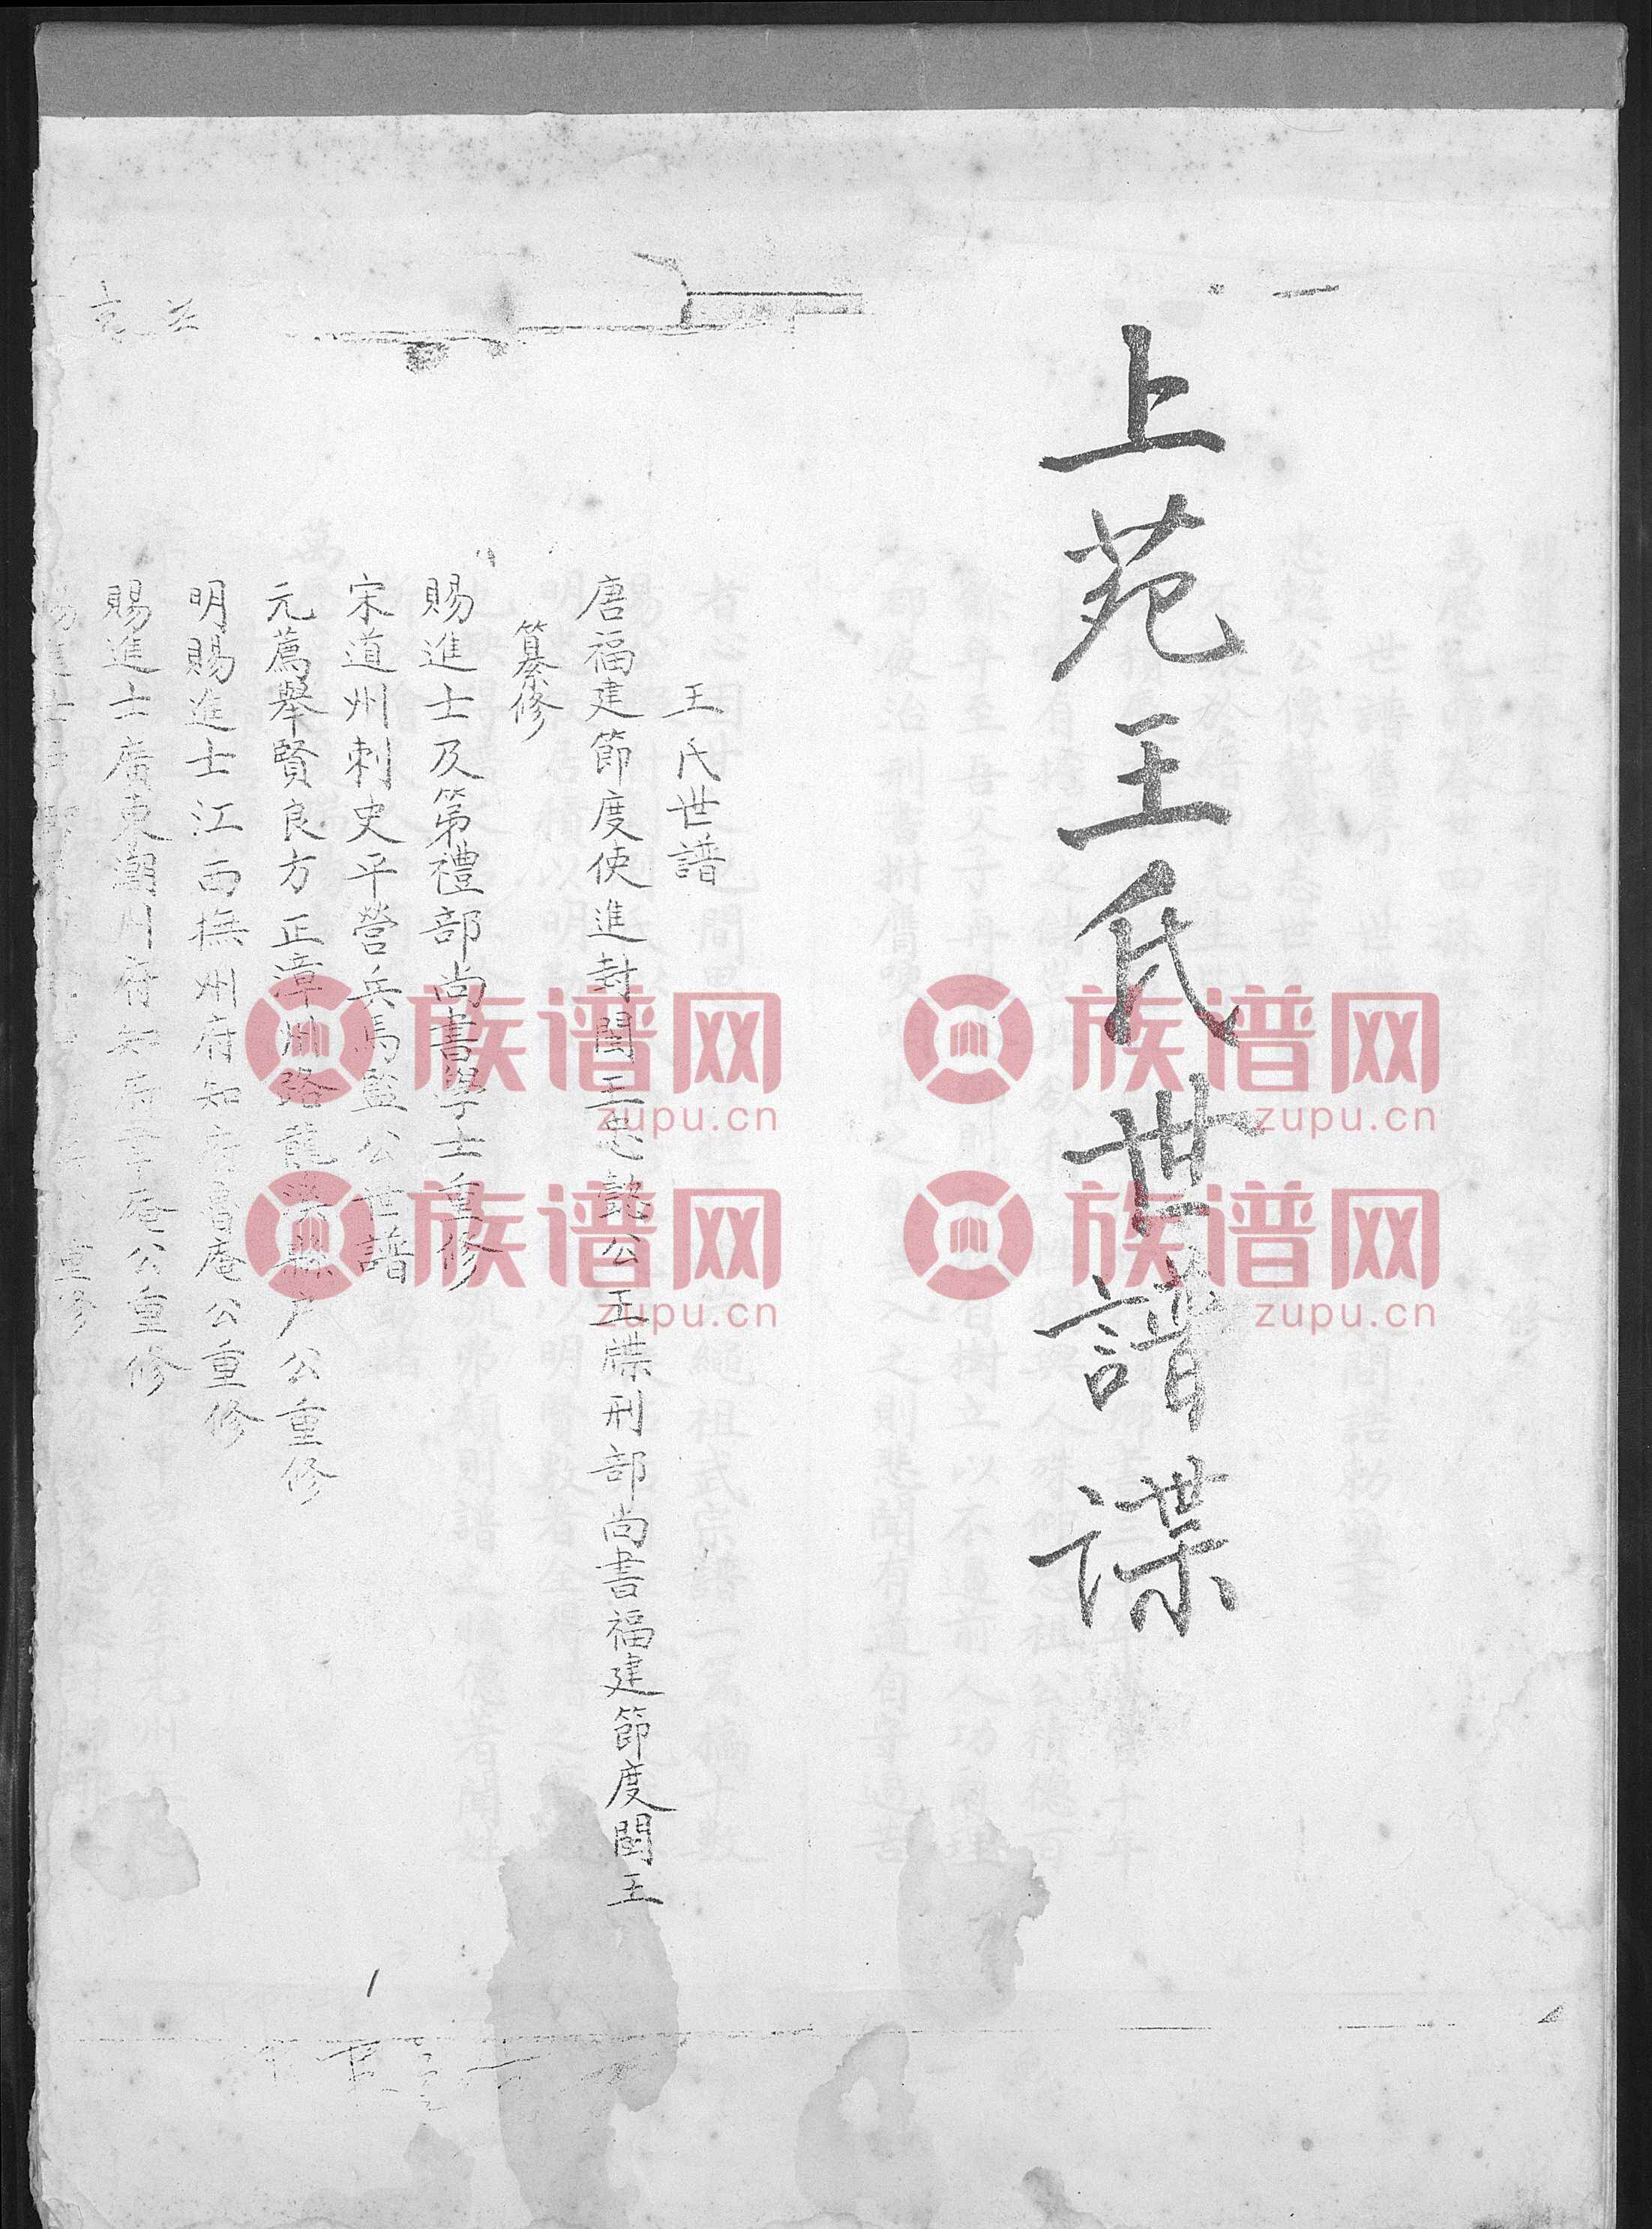 上苑王氏世譜諜
王氏世譜
唐福建節度使進封閩王忠懿公王牒刑部尚書福建節度閩王
纂修
賜進士及第禮部尚書學士重修
宋道州刺史平營兵馬監公世譜
元薦舉賢良方正漳州路龍溪縣尹公重修
明賜進士江西撫州府知府魯庵公重修
賜進士廣東潮州府知府 庵公重修
賜進士 重修
族谱网
zupu.cn
族谱网
zupu.cn
族谱网
zupu.cn
族谱网
zupu.cn